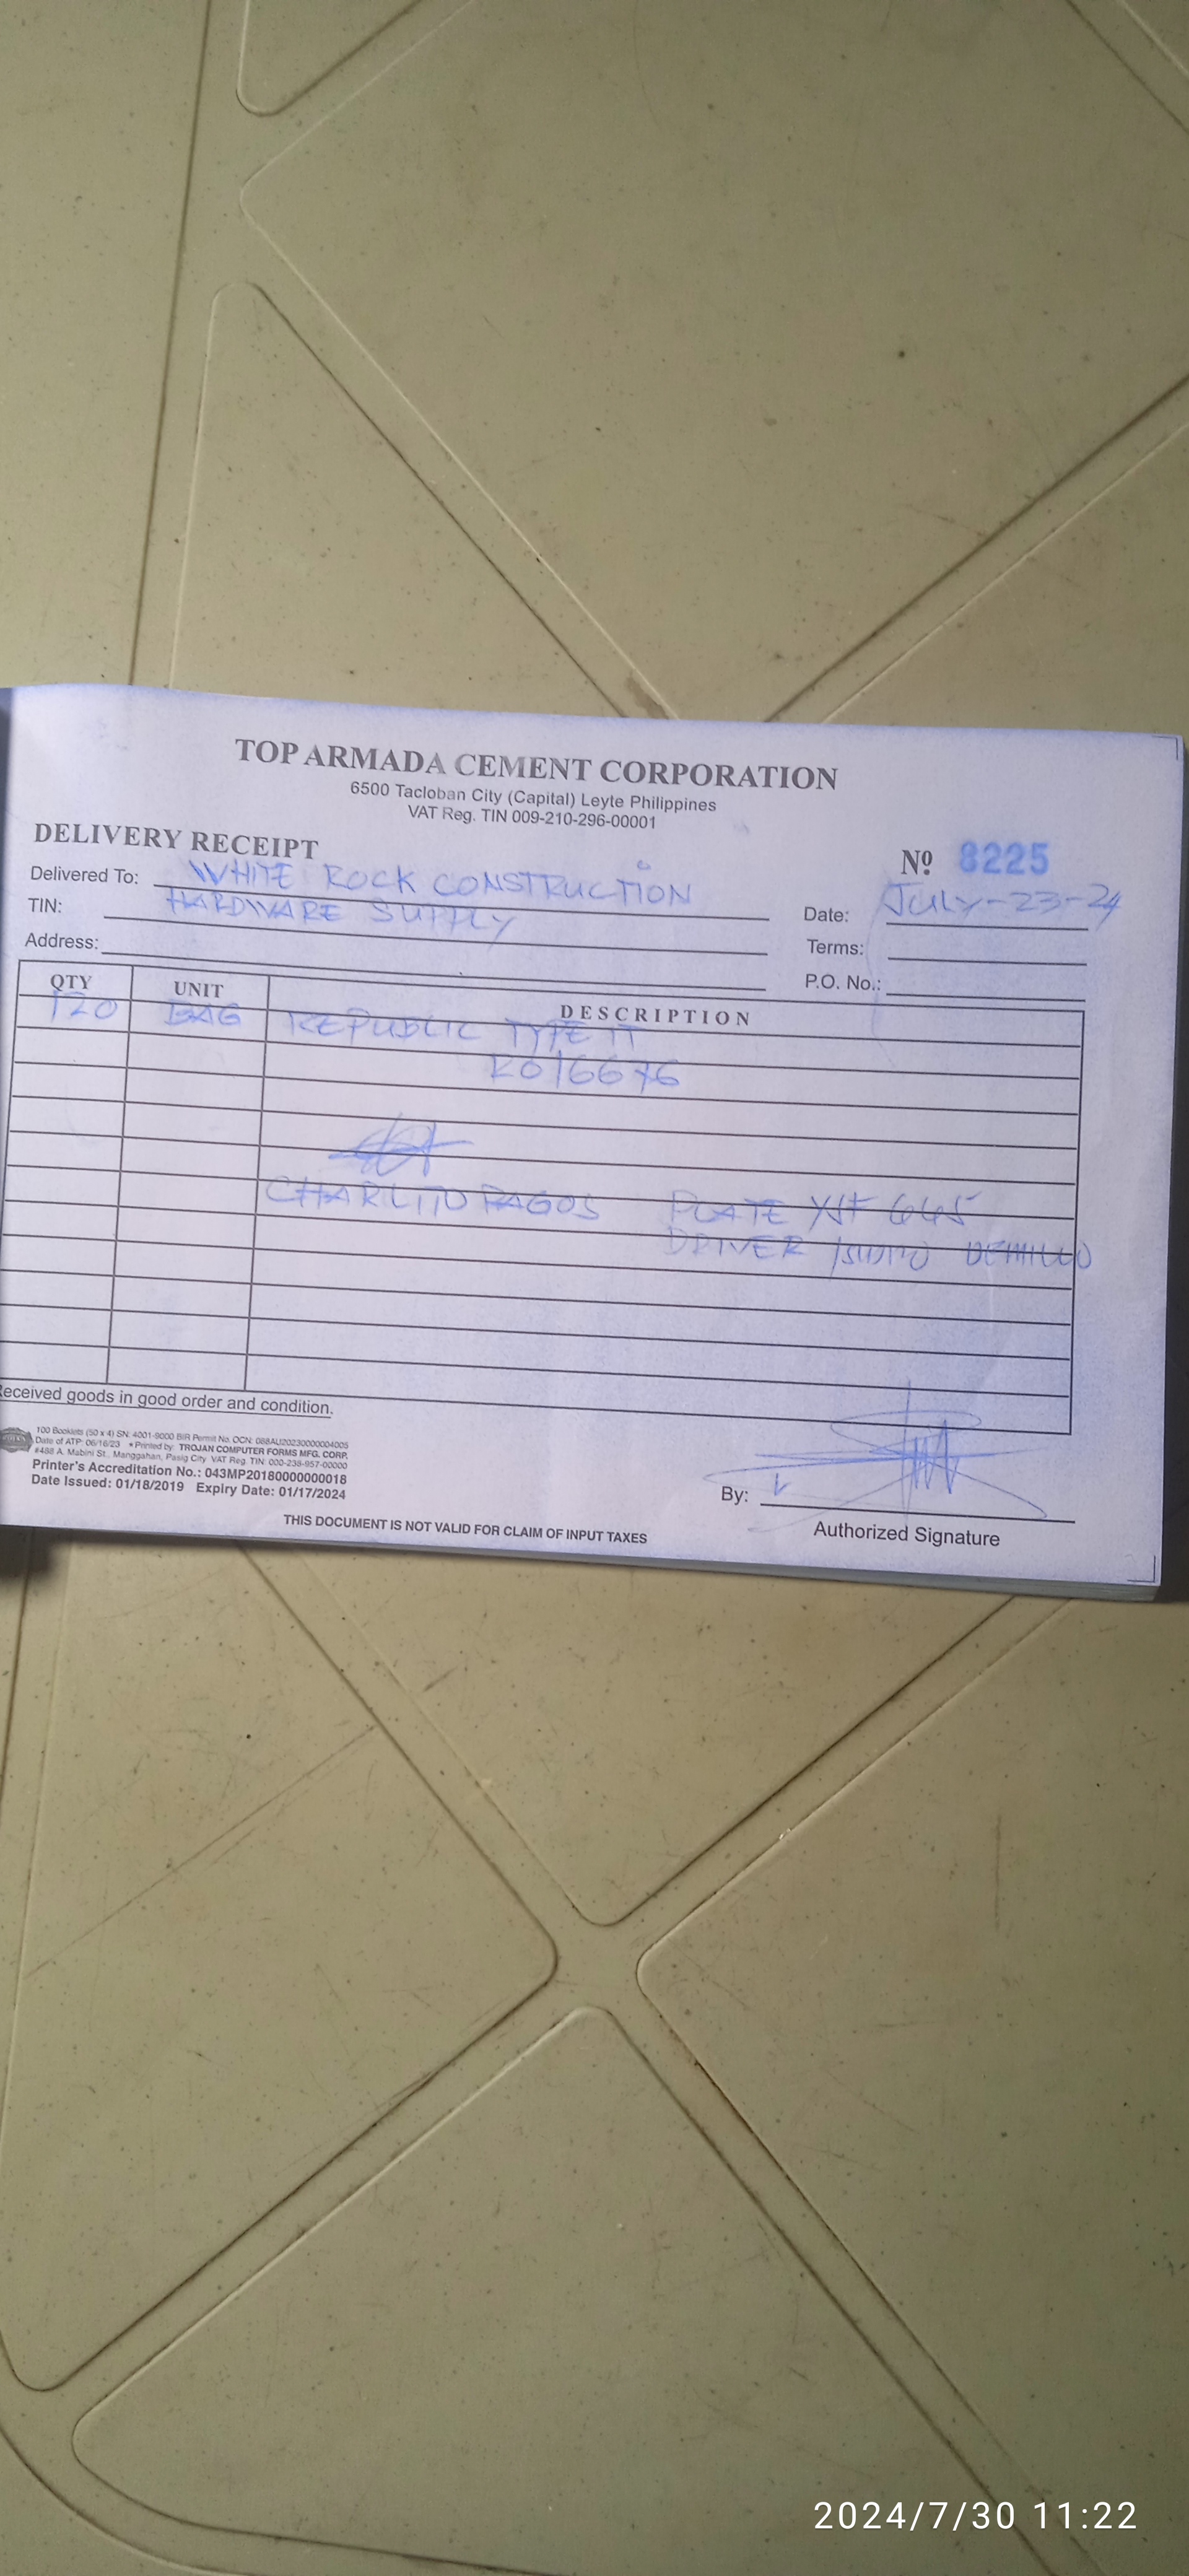 TOP ARMADA CEMENT CORPORATION
6500 Tacloban City (Capital) Leyte Philippines
VAT Reg. TIN 009-210-296-00001
DELIVERY RECEIPT
Nº 8225
Delivered To: WHITE ROCK CONSTRUCTION
TIN: HARDWARE SUPPLY
Date: JULY-23-24
Address:
Terms:
P.O. No.:
QTY UNIT DESCRIPTION
120 BAG REPUBLIC TYPE 1T
K016676
CHARLITO PLATE 645
DRIVER
Received goods in good order and condition.
100 Booklets (50 x 4) SN: 4001-9000 BIR Permit No. OCN: 088AU20230000004005
Date of ATP: 06/16/23 * Printed by: TROJAN COMPUTER FORMS MFG. CORP.
#488 A. Mabini St., Manggahan, Pasig City VAT Reg. TIN: 000-238-957-00000
Printer's Accreditation No.: 043MP20180000000018
Date Issued: 01/18/2019 Expiry Date: 01/17/2024
By:
Authorized Signature
THIS DOCUMENT IS NOT VALID FOR CLAIM OF INPUT TAXES
2024/7/30 11:22